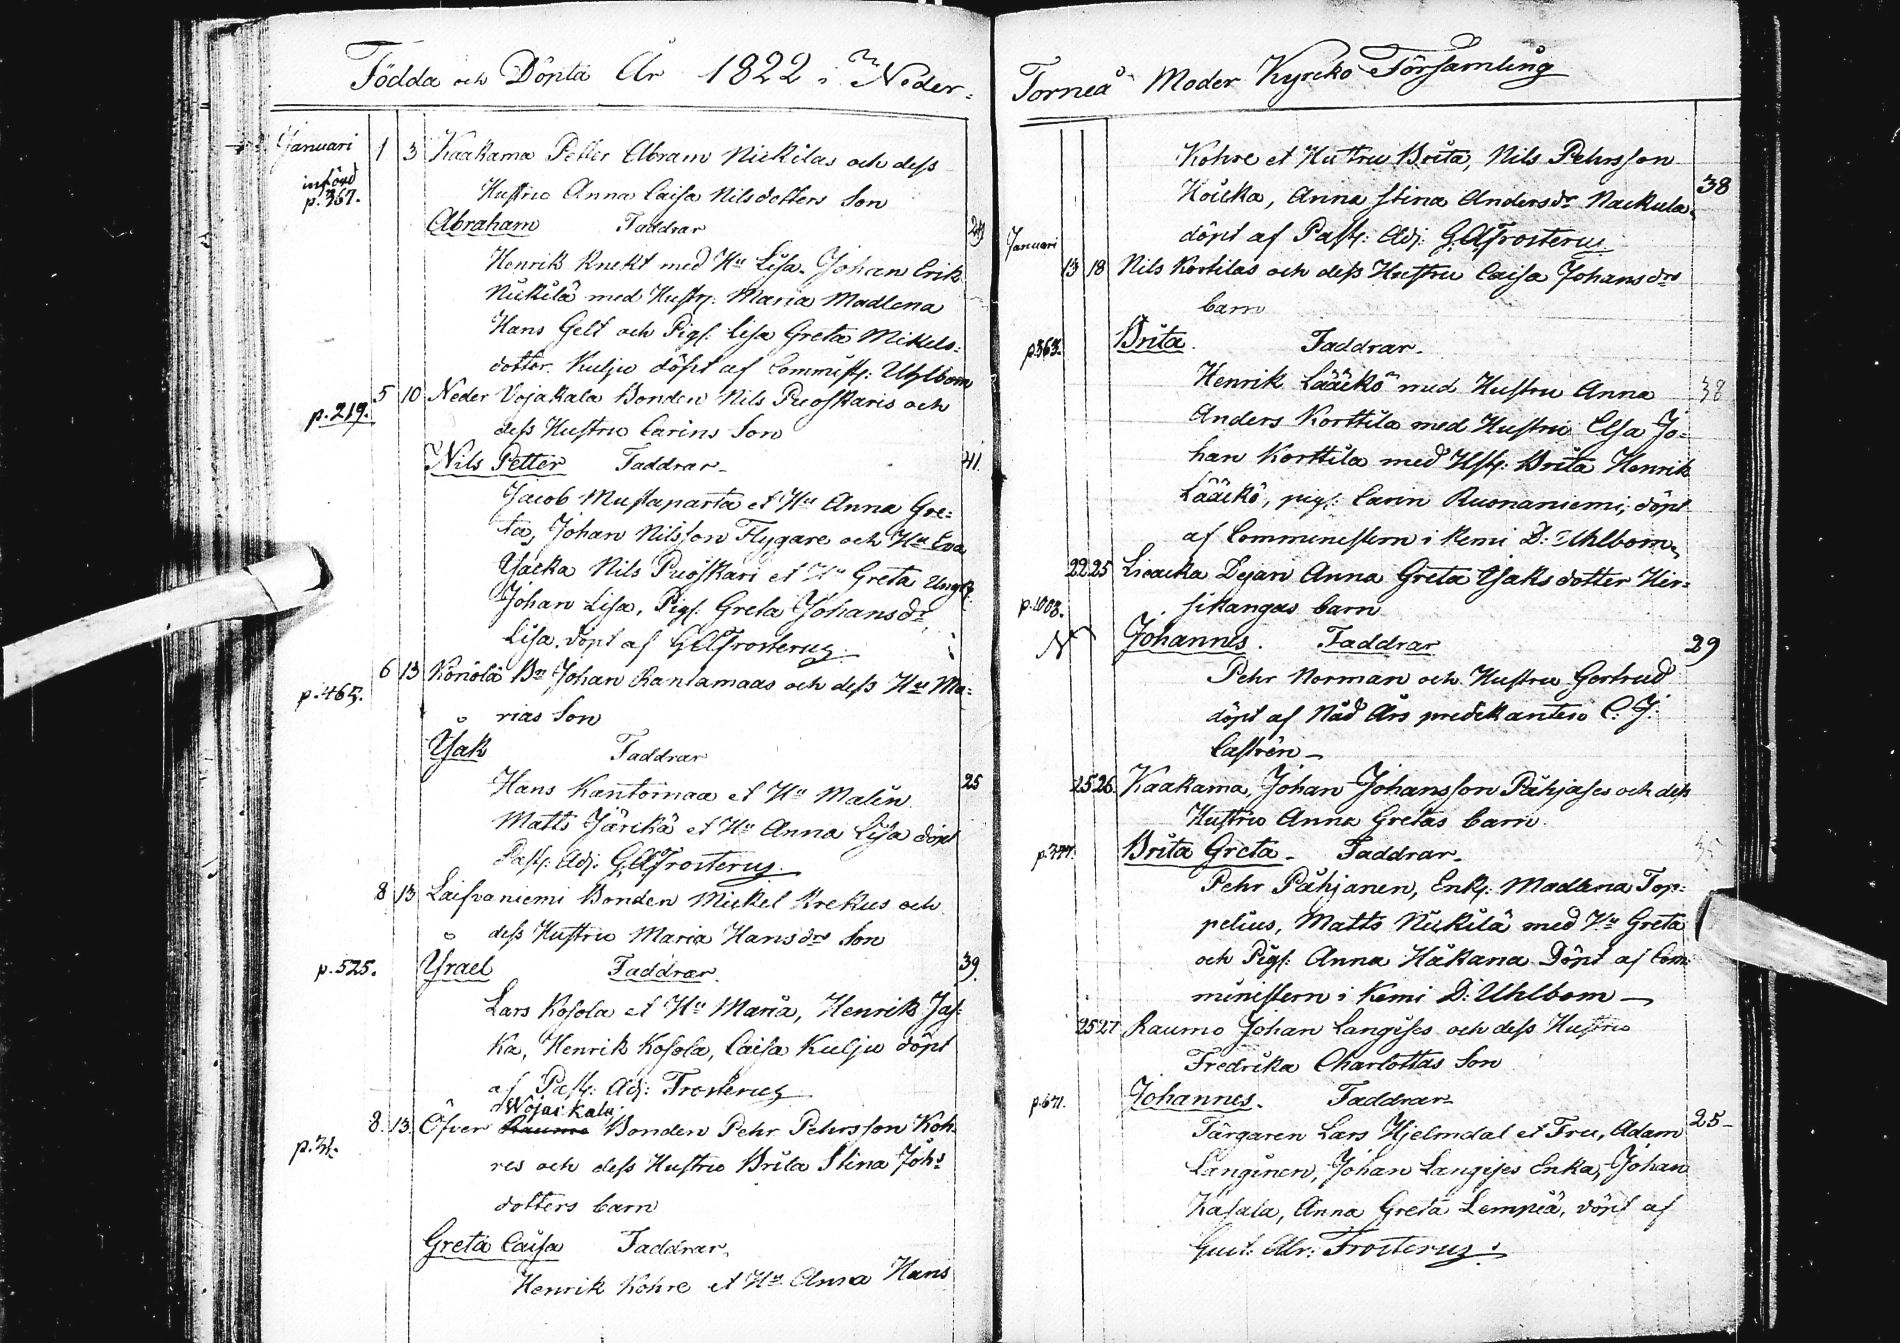 Födda och Döpta År 1822 i Neder-
Januari 1 3 Kaakama Petter Abram Nickilas och dess
införd p. 367.
Hustru Anna Caisa Nilsdotters Son
Abraham Faddrar
Henrik Knekt med Hu Lisa. Johan Erik
Nickilä med Hustr: Maria Madlena
Hans Gelt och Pigs. Lisa Greta Mickels-
dotter Kuljo döpt af Comminist: Uhlbom
p. 219. 5 10 Neder Vojakala Bonden Nils Puoskaris och
dess Hustru Carins Son
Nils Petter Faddrar 41.
Jacob Mustaparta et Hu Anna Gre-
ta, Johan Nilsson Flygare och Hu Eva
Yacka Nils Puoskari et Hu Greta
Johan Lisa, Pigs. Greta Johansdr
Lisa. döpt af G A Frosterus.
p. 465. 6 13 Körölä Bn Johan Rantamaas och dess Hu Ma-
rias Son
Ysak Faddrar
Hans Kantomaa et Hu Malin 25
Matts Järckä et Hu Anna Lisa döpt
Past: Adj. G A Frosterus.
8 13 Laisvaniemi Bonden Mickel Krekus och
dess Hustru Maria Hansdrs Son
p. 525. Ysrael Faddrar 39.
Lars Kosola et Hu Maria, Henrik Jas-
ka, Henrik Kosola, Caisa Kuljo döpt
af Past: Adj: Frosterus
Wojaikala
p. 31. 8. 13. Öfver Raumo Bonden Pehr Pehrsson Koh-
res och dess Hustru Brita Stina Johs
dotters barn
Greta Caisa Faddrar
Henrik Kohre et Hu Anna Hans
Torneå Moder Kyrcko Församling
Kohre et Hustru Brita, Nils Pehrsson
Houcka, Anna Stina Andersdr Nackula 38
döpt af Past: Adj: G A Frosterus
Januari
13 18 Nils Kortilas och dess Hustru Caisa Johansdrs
barn
p. 363. Brita Faddrar.
Henrik Lääckö med Hustru Anna 38
Anders Korttila med Hustru Elsa Jo-
han Korttila med Hst: Brita Henrik
Lääckö, pigs. Carin Ruonaniemi, döpt
af Comministern i Kemi D: Uhlbom.
22 25 Liacka Dejan Anna Greta Ysaksdotter Hir-
sikangas barn
p. 1003.
N Johannes. Faddrar 29
Pehr Norman och Hustru Gertrud
döpt af Nåd Års predikanten C. J.
Castrén
25 26 Kaakama, Johan Johansson Påhjases och dess
Hustru Anna Gretas barn.
p. 344. Brita Greta Faddrar 35
Pehr Påhjanen, Enk: Madlena Top-
pelius, Matts Nickilä med Hu Greta
och Pigs. Anna Håkana Döpt af Com-
ministern i Kemi D: Uhlbom
25 27 Raumo Johan Langises och dess Hustru
Fredrika Charlottas Son
p. 671. Johannes. Faddrar
Färgaren Lars Hjelmdal et Fru, Adam 25
Langinen, Johan Langises Enka, Johan
Kasala, Anna Greta Lempiä, döpt af
Gust: Abr: Frosterus.